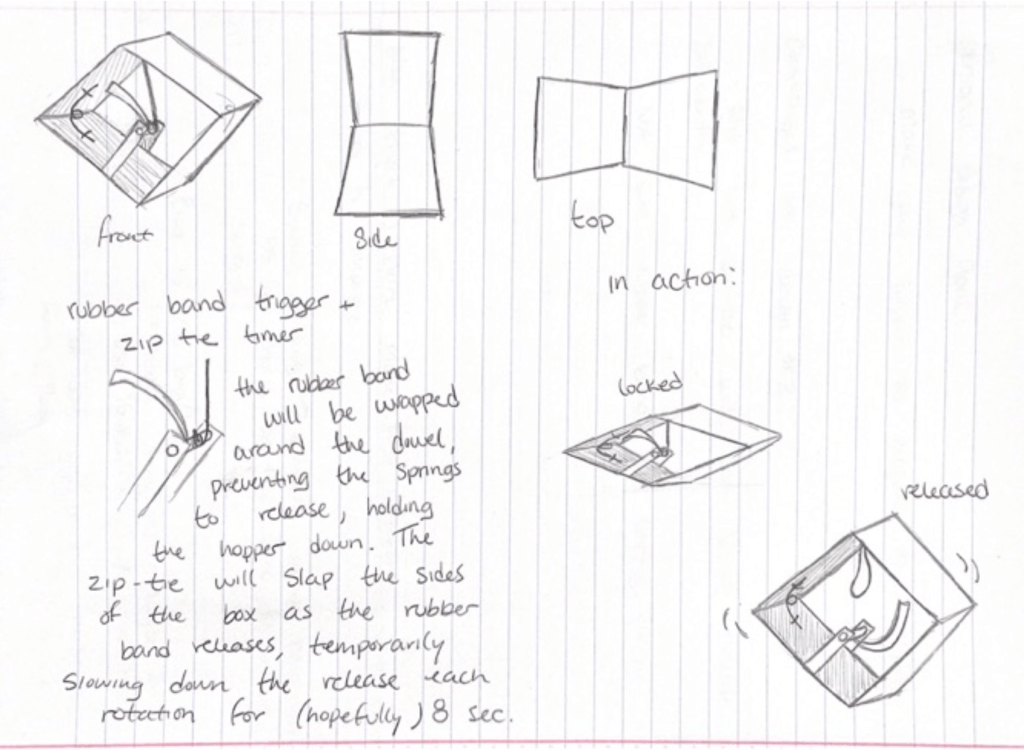 front
side
top
in action:
rubber band trigger +
zip tie timer
the rubber band
will be wrapped
around the dowel,
preventing the springs
to release, holding
the hopper down. The
zip-tie will slap the sides
of the box as the rubber
band releases, temporarily
slowing down the release each
rotation for (hopefully) 8 sec.
locked
released